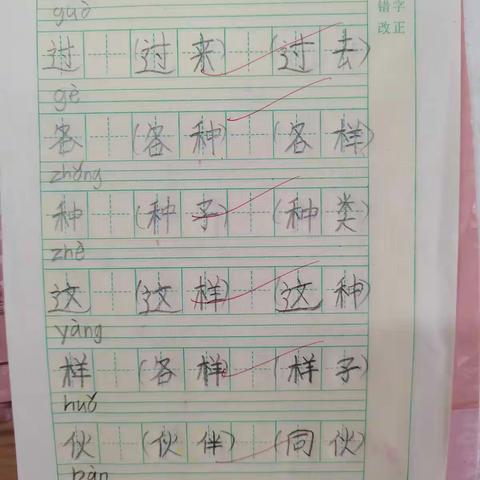 guò
错字
改正
过 (过来) (过去)
gè
各 (各种) (各样)
zhǒng
种 (种子) (种类)
zhè
这 (这样) (这种)
yàng
样 (各样) (样子)
huǒ
伙 (伙伴) (同伙)
bàn